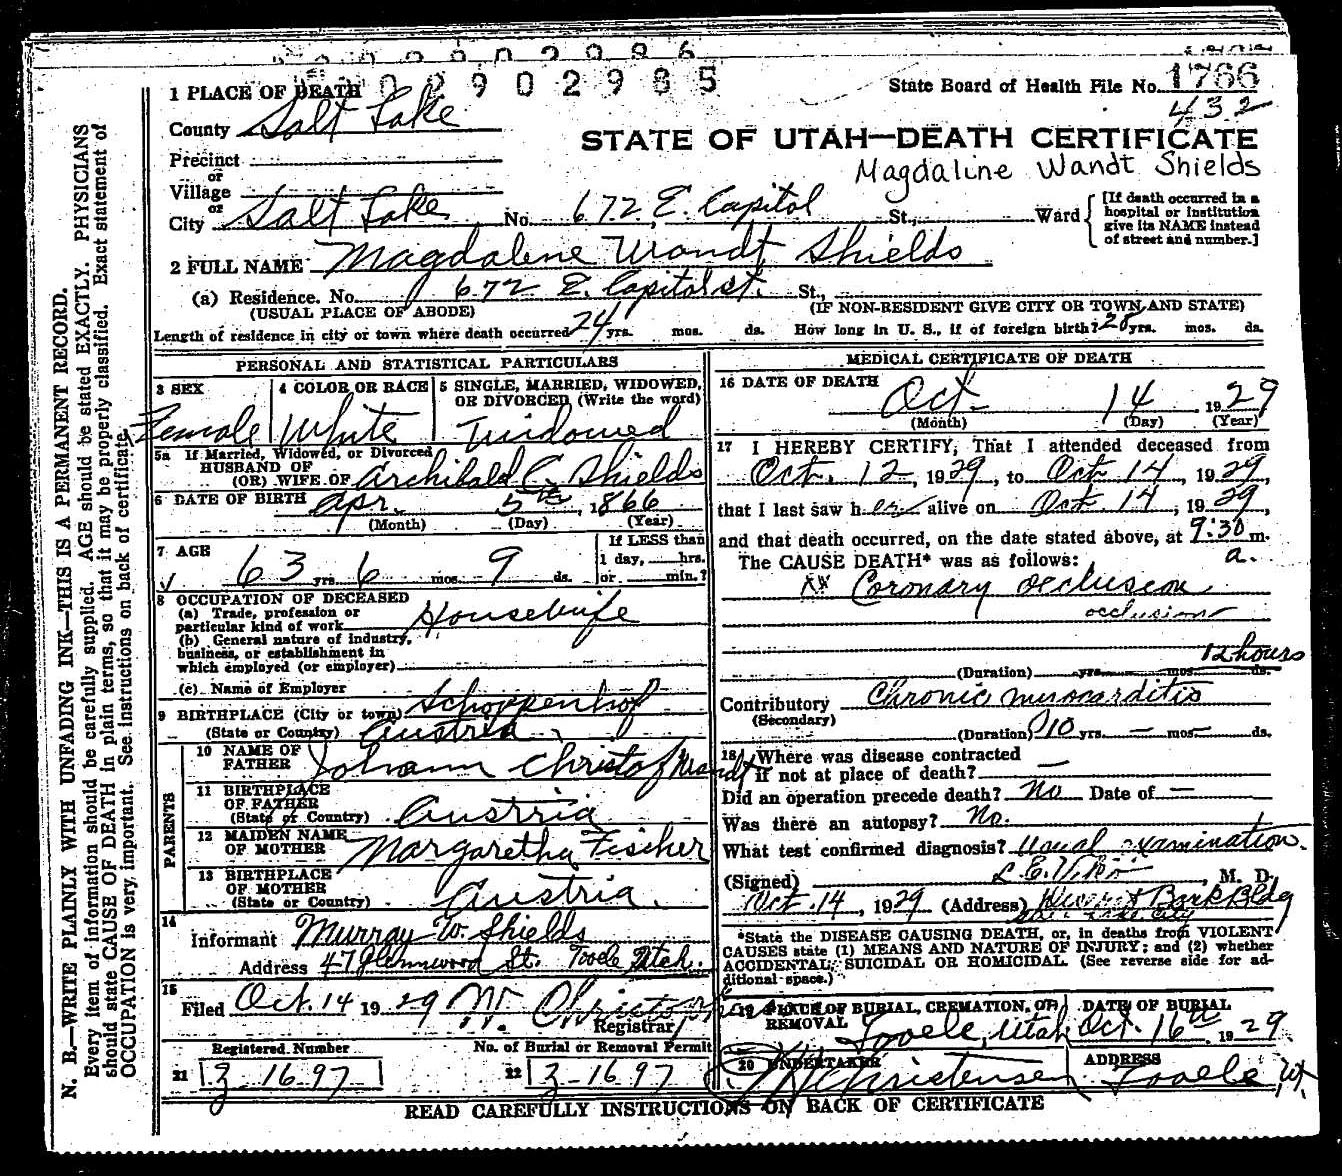 2902985
State Board of Health File No. 1766
432
STATE OF UTAH—DEATH CERTIFICATE
Magdaline Wandt Shields
1 PLACE OF DEATH
County Salt Lake
Precinct
or
Village
or
City Salt Lake No. 672 E. Capitol St., Ward
[If death occurred in a hospital or institution give its NAME instead of street and number.]
2 FULL NAME Magdalene Wandt Shields
(a) Residence. No. 672 E. Capitol St. St.,
(USUAL PLACE OF ABODE) (IF NON-RESIDENT GIVE CITY OR TOWN AND STATE)
Length of residence in city or town where death occurred 24 yrs. mos. ds. How long in U. S., if of foreign birth? yrs. mos. ds.
PERSONAL AND STATISTICAL PARTICULARS
3 SEX
Female
4 COLOR OR RACE
White
5 SINGLE, MARRIED, WIDOWED,
OR DIVORCED (Write the word)
Widowed
5a If Married, Widowed, or Divorced
HUSBAND OF
(OR) WIFE OF Archibald C. Shields
6 DATE OF BIRTH Apr. 5th, 1866
(Month) (Day) (Year)
7 AGE
63 yrs. 6 mos. 9 ds.
If LESS than
1 day, hrs.
or min.?
8 OCCUPATION OF DECEASED
(a) Trade, profession or
particular kind of work Housewife
(b) General nature of industry,
business, or establishment in
which employed (or employer)
(c) Name of Employer
9 BIRTHPLACE (City or town) Schoppenhof
(State or Country) Austria
PARENTS
10 NAME OF
FATHER Johann Christof Wandt
11 BIRTHPLACE
OF FATHER
(State or Country) Austria
12 MAIDEN NAME
OF MOTHER Margaretha Fischer
13 BIRTHPLACE
OF MOTHER
(State or Country) Austria.
14
Informant Murray W. Shields
Address 47 Glennwood St. Tooele Utah.
15
Filed Oct. 14 1929
Registrar
Registered Number
No. of Burial or Removal Permit
21 3-1697
22 3-1697
MEDICAL CERTIFICATE OF DEATH
16 DATE OF DEATH
Oct 14 1929
(Month) (Day) (Year)
17 I HEREBY CERTIFY, That I attended deceased from
Oct. 12, 1929, to Oct 14, 1929,
that I last saw her alive on Oct. 14, 1929,
and that death occurred, on the date stated above, at 9:30 m.
a.
The CAUSE DEATH* was as follows:
Coronary occlusion
occlusion
12 hours
(Duration) yrs. mos. ds.
Contributory Chronic myocarditis
(Secondary)
(Duration) 10 yrs. — mos. — ds.
18 Where was disease contracted
if not at place of death? —
Did an operation precede death? No Date of —
Was there an autopsy? No.
What test confirmed diagnosis? Usual examination.
(Signed) , M. D.
Oct. 14, 1929 (Address) Deseret Bank Bldg
Salt Lake City
*State the DISEASE CAUSING DEATH, or, in deaths from VIOLENT
CAUSES state (1) MEANS AND NATURE OF INJURY; and (2) whether
ACCIDENTAL, SUICIDAL OR HOMICIDAL. (See reverse side for ad-
ditional space.)
19 PLACE OF BURIAL, CREMATION, OR
REMOVAL Tooele, Utah
DATE OF BURIAL
Oct. 16th, 1929
20 UNDERTAKER
Christensen
ADDRESS
Tooele, Ut.
READ CAREFULLY INSTRUCTIONS ON BACK OF CERTIFICATE
N. B.—WRITE PLAINLY WITH UNFADING INK—THIS IS A PERMANENT RECORD.
Every item of information should be carefully supplied. AGE should be stated EXACTLY. PHYSICIANS
should state CAUSE OF DEATH in plain terms, so that it may be properly classified. Exact statement of
OCCUPATION is very important. See instructions on back of certificate.